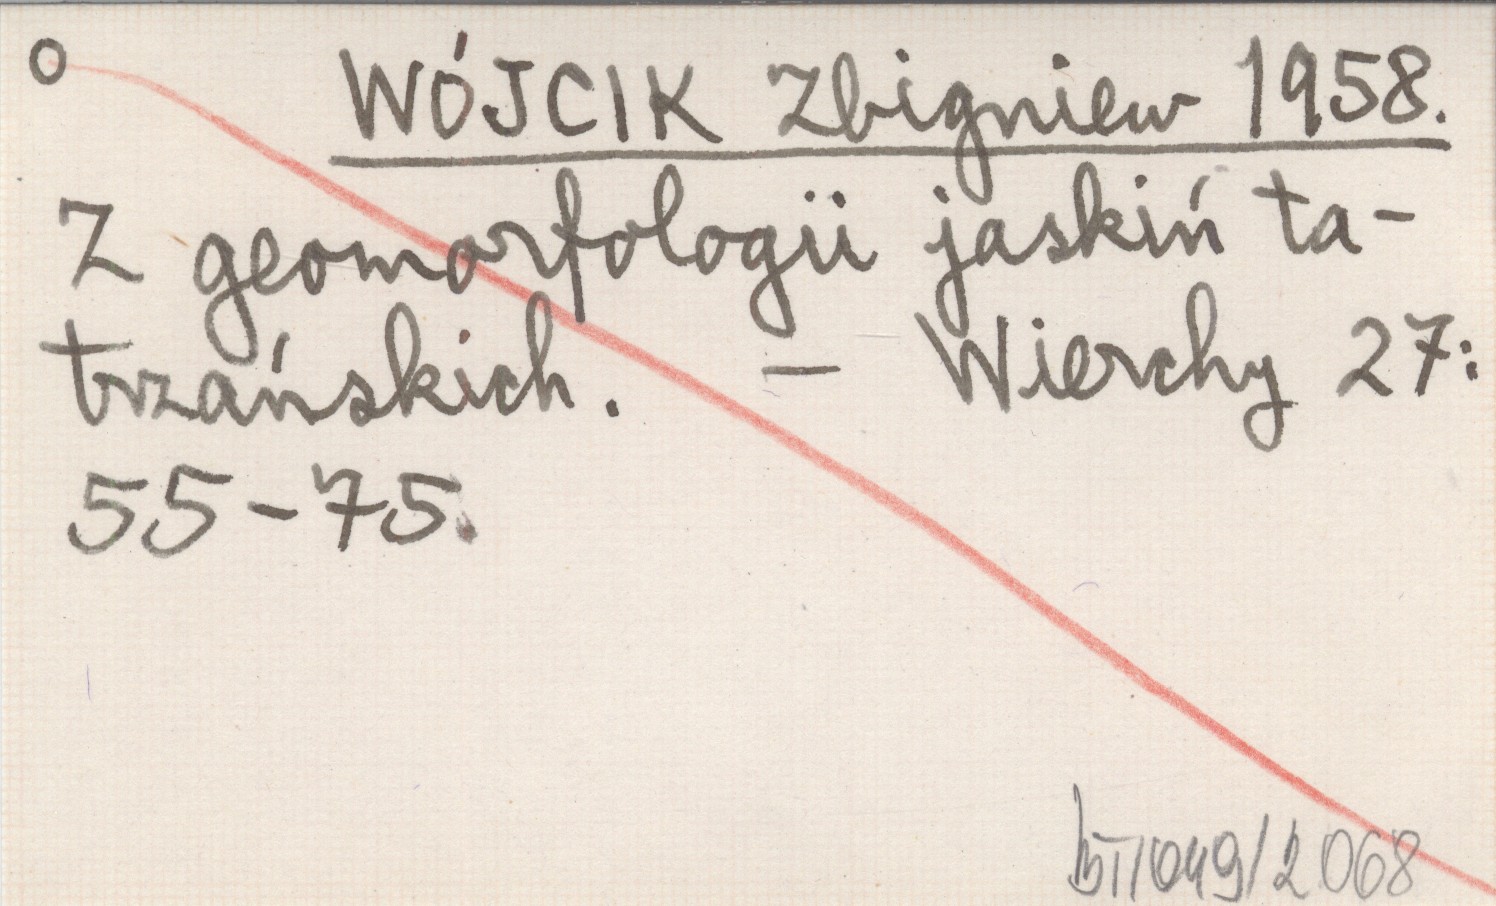 o
WÓJCIK Zbigniew 1958.
Z geomorfologii jaskiń ta-
trzańskich. - Wierchy 27:
55-75.
BT/049/2068